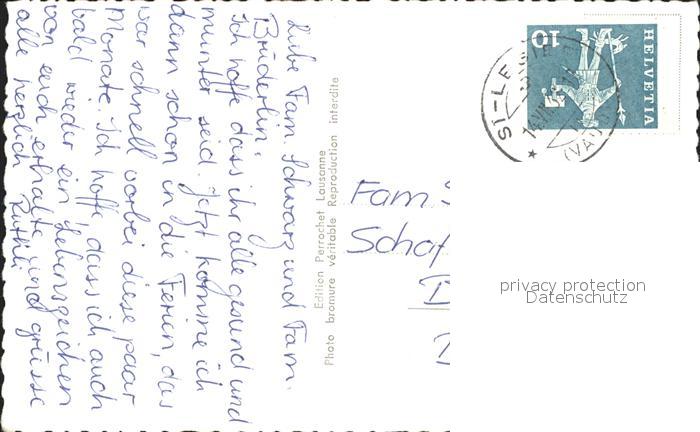 Liebe Fam. Schwarz und Fam.
Brüderlin.
Ich hoffe dass ihr alle gesund und
munter seid. Jetzt komme ich
dann schon in die Ferien, das
war schnell vorbei diese paar
Monate. Ich hoffe, dass ich auch
bald wieder ein Lebenszeichen
von euch erhalte und grüsse
alle herzlich Ruthli
Edition Perrochet Lausanne
Photo bromure véritable Reproduction interdite
HELVETIA
10
ST-LE
(VAU
Fam. S
Schaf
privacy protection
Datenschutz